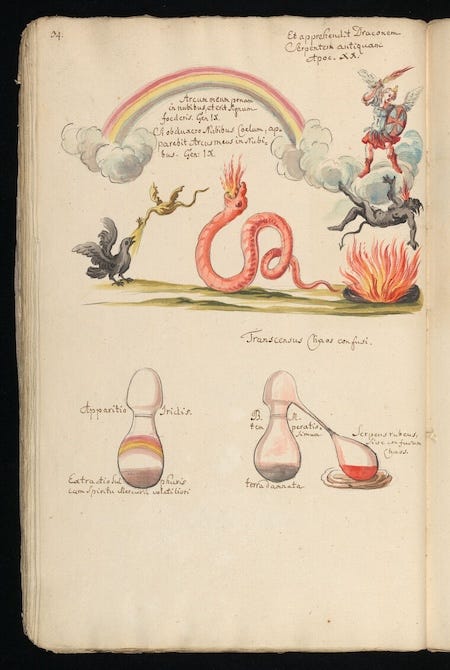 34.
Et apprehendit Draconem
Serpentem antiquam
Apoc. XX.
Arcum meum ponam
in nubibus, et erit Signum
foederis. Gen IX.
Cumq obduxero Nubibus Coelum, ap-
parebit Arcus meus in Nubi-
bus. Gen: IX.
Transcensus Chaos confusi.
Apparitio Iridis.
Extractio Sulphuris
cum Spiritu Mercurii volatiliori
terra damnata
Serpens rubeus,
sive confusum
Chaos.